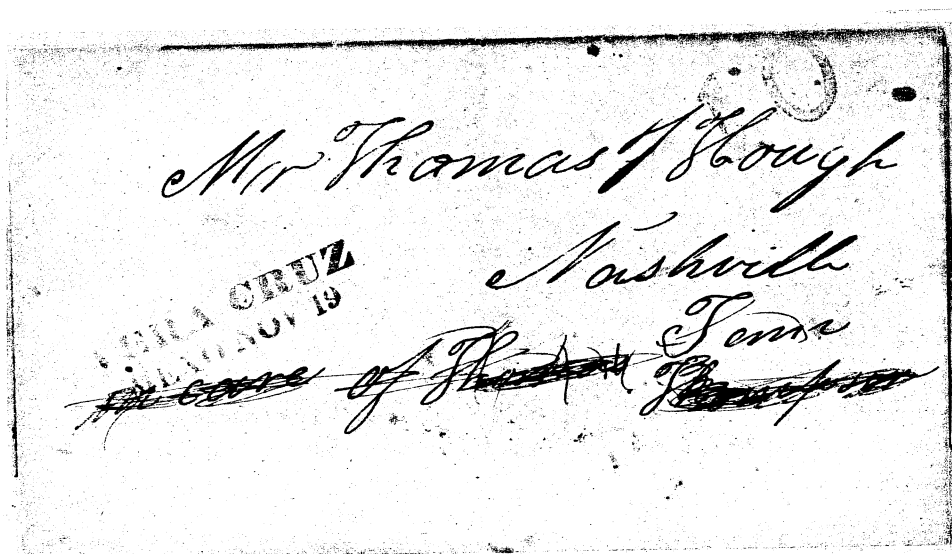 Mr Thomas J Hough
Nashville
Tenn
VERA CRUZ
MEX NOV 19
in care of Thompson